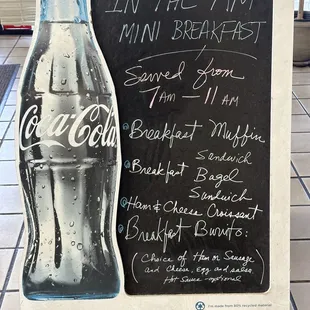 IN THE AM
MINI BREAKFAST
Served from
7AM - 11 AM
Coca-Cola
Breakfast Muffin
Sandwich
Breakfast Bagel
Sandwich
Ham & Cheese Croissant
Breakfast Burrito:
(Choice of Ham or Sausage
and Cheese, egg and salsa.
Hot Sauce optional)